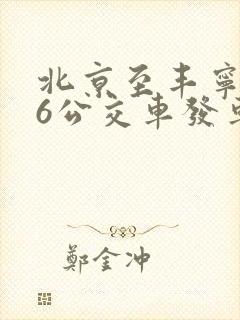 北京至丰寧
6公交車發
鄭金冲